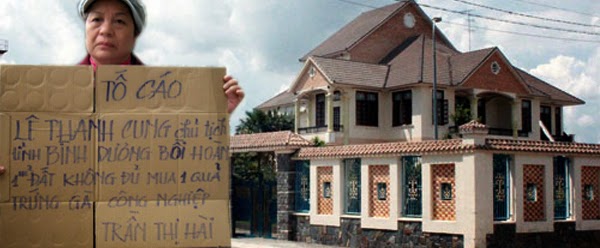 TỐ CÁO
LÊ THANH CUNG chủ tịch
tỉnh BÌNH DƯƠNG BỒI HOÀN
1m² ĐẤT KHÔNG ĐỦ MUA 1 QUẢ
TRỨNG GÀ CÔNG NGHIỆP
TRẦN THỊ HÀI